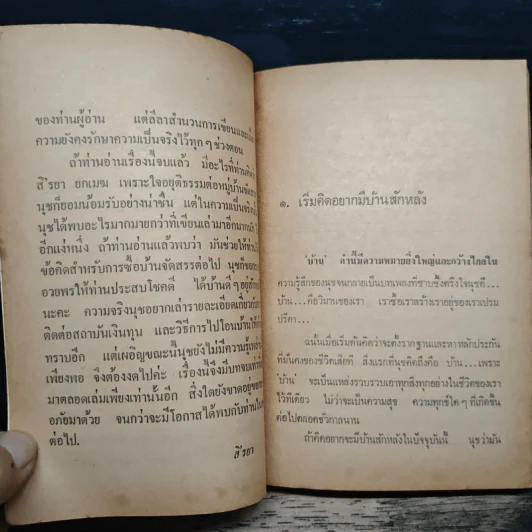 ของท่านผู้อ่าน แต่ลีลาสำนวนการเขียนและเนื้อ
ความยังคงรักษาความเป็นจริงไว้ทุกๆช่วงตอน
ถ้าท่านอ่านเรื่องนี้จบแล้ว มีอะไรที่ท่าน
สิรยา ยกเมฆ เพราะใจอยุติธรรมต่อหมู่บ้านจัด
นุชก็ยอมน้อมรับอย่างน่าชื่น แต่ในความเป็นจริง
นุชได้พบอะไรมากมายกว่าที่เขียนเล่ามาอีกมาก
อีกแง่หนึ่ง ถ้าท่านอ่านแล้วพบว่า มันช่วยให้ท่าน
ข้อคิดสำหรับการซื้อบ้านจัดสรรต่อไป นุชก็ขอ
อวยพรให้ท่านประสบโชคดี ได้บ้านดีๆอยู่
นะคะ ความจริงนุชอยากเล่ารายละเอียดเกี่ยวกับ
ติดต่อสถาบันเงินทุน และวิธีการไปโอนบ้านให้
ทราบอีก แต่เผอิญขณะนี้นุชยังไม่มีความรู้
เพียงพอ จึงต้องงดไปค่ะ เรื่องนี้จึงมีบทจบ
มาตลอดเล่มเพียงเท่านั้นอีก สิ่งใดยังขาดอยู่ขอ
อภัยมาด้วย จนกว่าจะมีโอกาสได้พบกับท่าน
ต่อไป.
สิรยา
๑. เริ่มคิดอยากมีบ้านสักหลัง
'บ้าน' คำนี้มีความหมายยิ่งใหญ่และกว้างไกลใน
ความรู้สึกของนุชจนกลายเป็นบทเพลงที่ซาบซึ้งตรึงใจนุชดี...
บ้าน...คือวิมานของเรา เราซื้อเราสร้างเราอยู่ของเราเปรม
ปรีดา...
ฉะนั้นเมื่อเริ่มต้นคิดว่าจะตั้งรากฐานและหาหลักประกัน
ที่มั่นคงของชีวิตเสียที สิ่งแรกที่นุชคิดถึงคือ บ้าน...เพราะ
'บ้าน' จะเป็นแหล่งรวบรวมเอาทุกสิ่งทุกอย่างในชีวิตของเรา
ไว้ทีเดียว ไม่ว่าจะเป็นความสุข ความทุกข์ใดๆที่เกิดขึ้น
ต่อไปตลอดชั่วกาลนาน
ถ้าคิดอยากจะมีบ้านสักหลังในปัจจุบันนี้ นุชว่ามัน